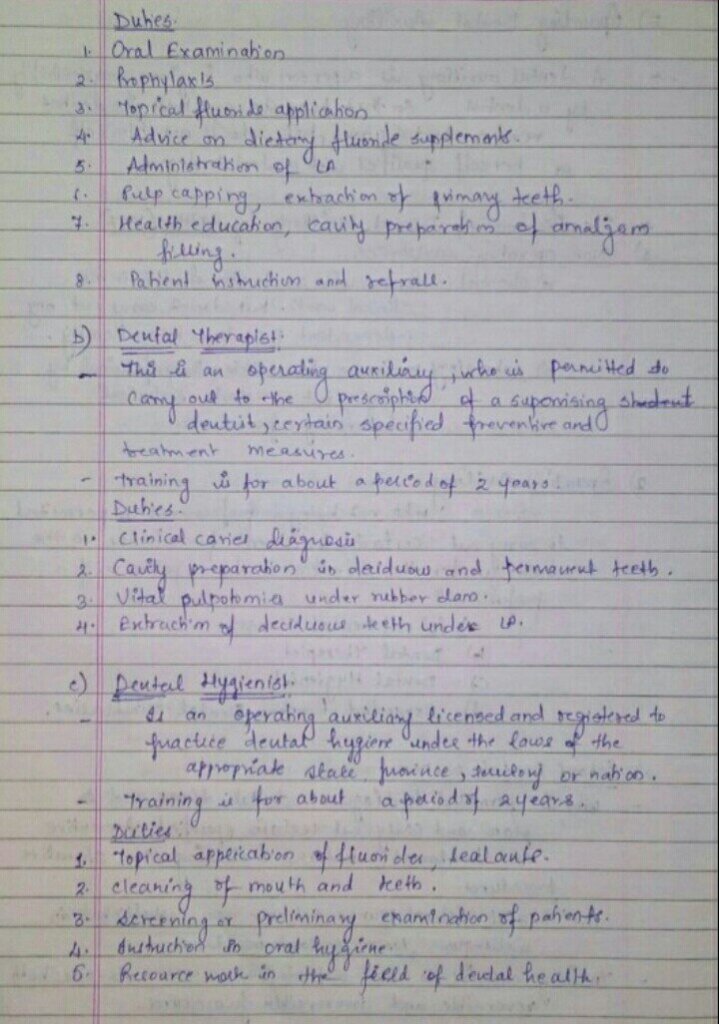 Duties.
1. Oral Examination
2. Prophylaxis
3. Topical fluoride application
4. Advice on dietary fluoride supplements.
5. Administration of LA
6. Pulp capping, extraction of primary teeth.
7. Health education, cavity preparation of amalgam
filling.
8. Patient instruction and refrall.
b) Dental Therapist.
- This is an operating auxiliary, who is permitted to
carry out to the prescription of a supervising student
dentist, certain specified preventive and
treatment measures.
- Training is for about a period of 2 years.
Duties.
1. Clinical caries diagnosis
2. Cavity preparation in deciduous and permanent teeth.
3. Vital pulpotomies under rubber dam.
4. Extraction of deciduous teeth under LA.
c) Dental Hygienist.
- Is an operating auxiliary licensed and registered to
practice dental hygiene under the laws of the
appropriate state, province, territory or nation.
- Training is for about a period of 2 years.
Duties
1. Topical application of fluorides, sealants.
2. cleaning of mouth and teeth.
3. Screening or preliminary examination of patients.
4. Instruction in oral hygiene.
5. Resource work in the field of dental health.